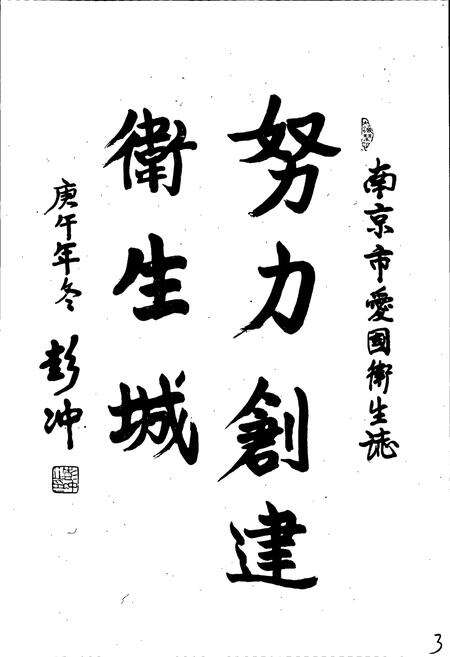 南京市愛國衛生誌
努力創建
衛生城
庚午年冬 彭冲
3